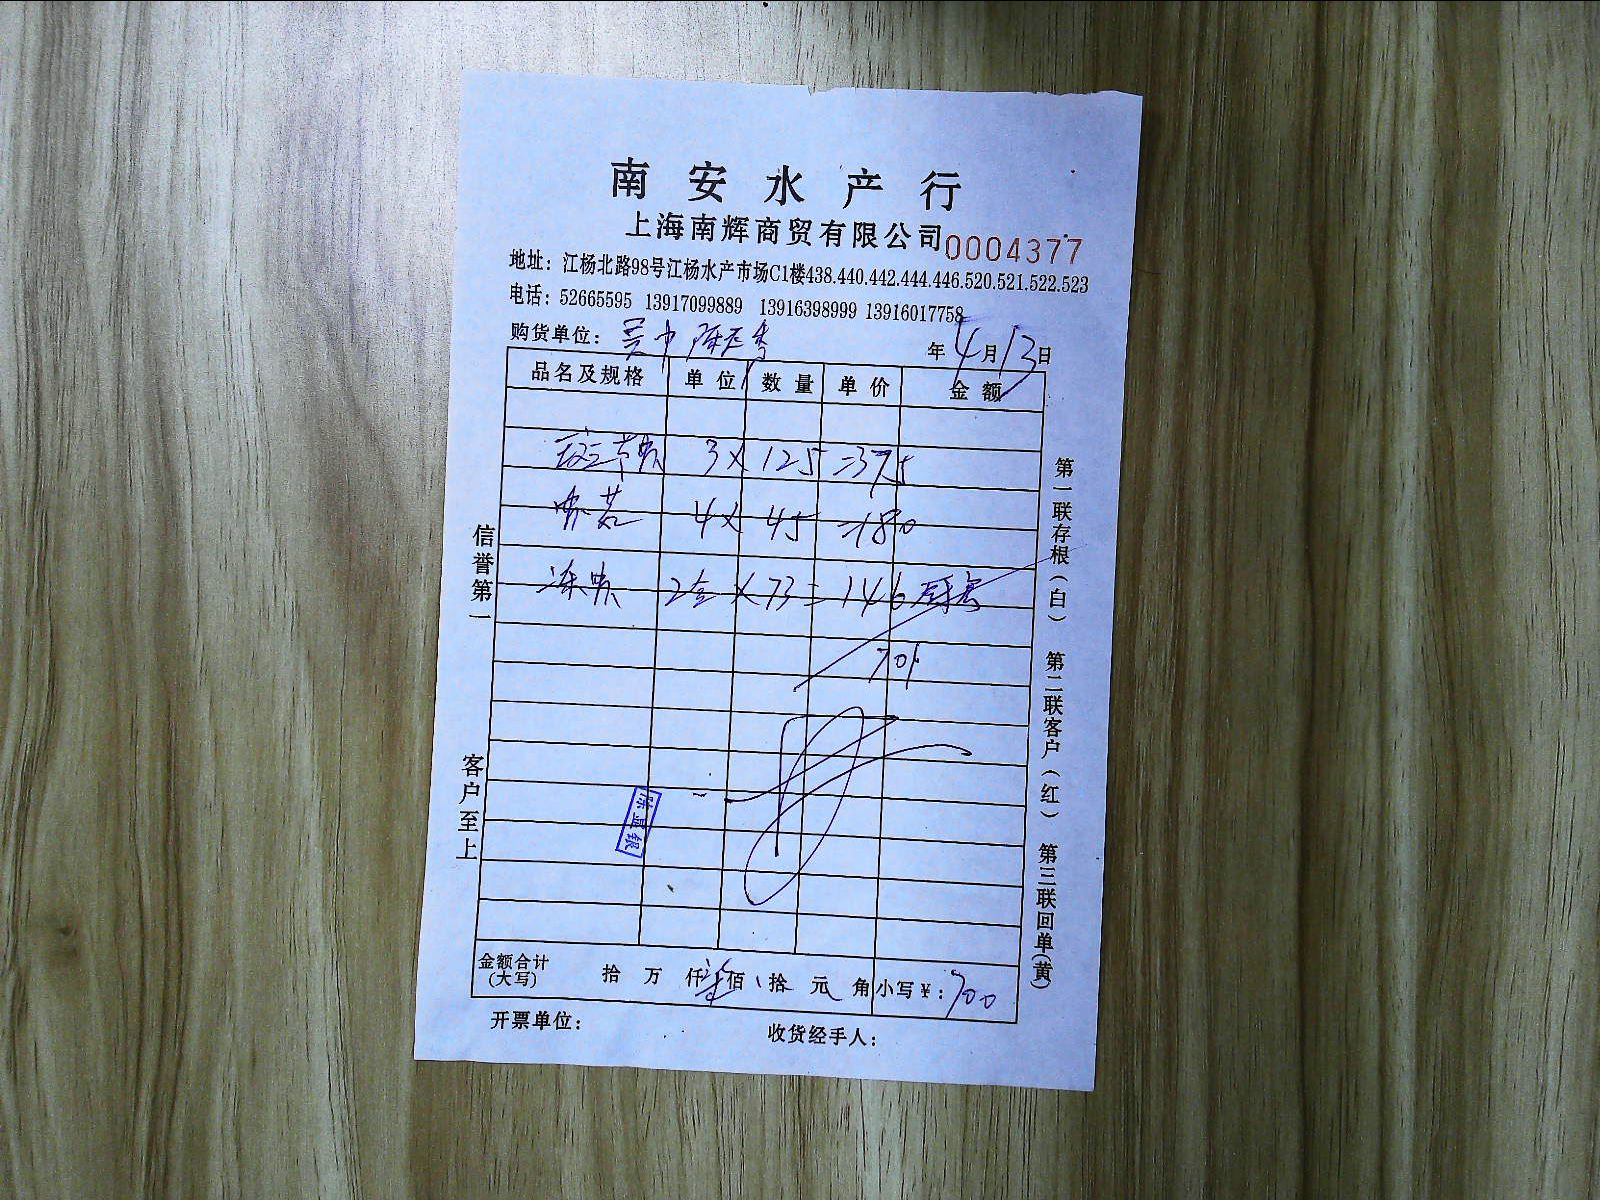 南安水产行
上海南辉商贸有限公司 0004377
地址：江杨北路98号江杨水产市场C1楼438.440.442.444.446.520.521.522.523
电话：52665595 13917099889 13916398999 13916017758
购货单位：
年4月13日
品名及规格 单位 数量 单价 金额
3 × 125 =375
4 × 45 =180
冻 2盒 × 73 = 146
701
金额合计(大写) 拾 万 仟 柒佰 拾 元 角 小写￥：700
开票单位： 收货经手人：
信誉第一
客户至上
第一联存根(白) 第二联客户(红) 第三联回单(黄)